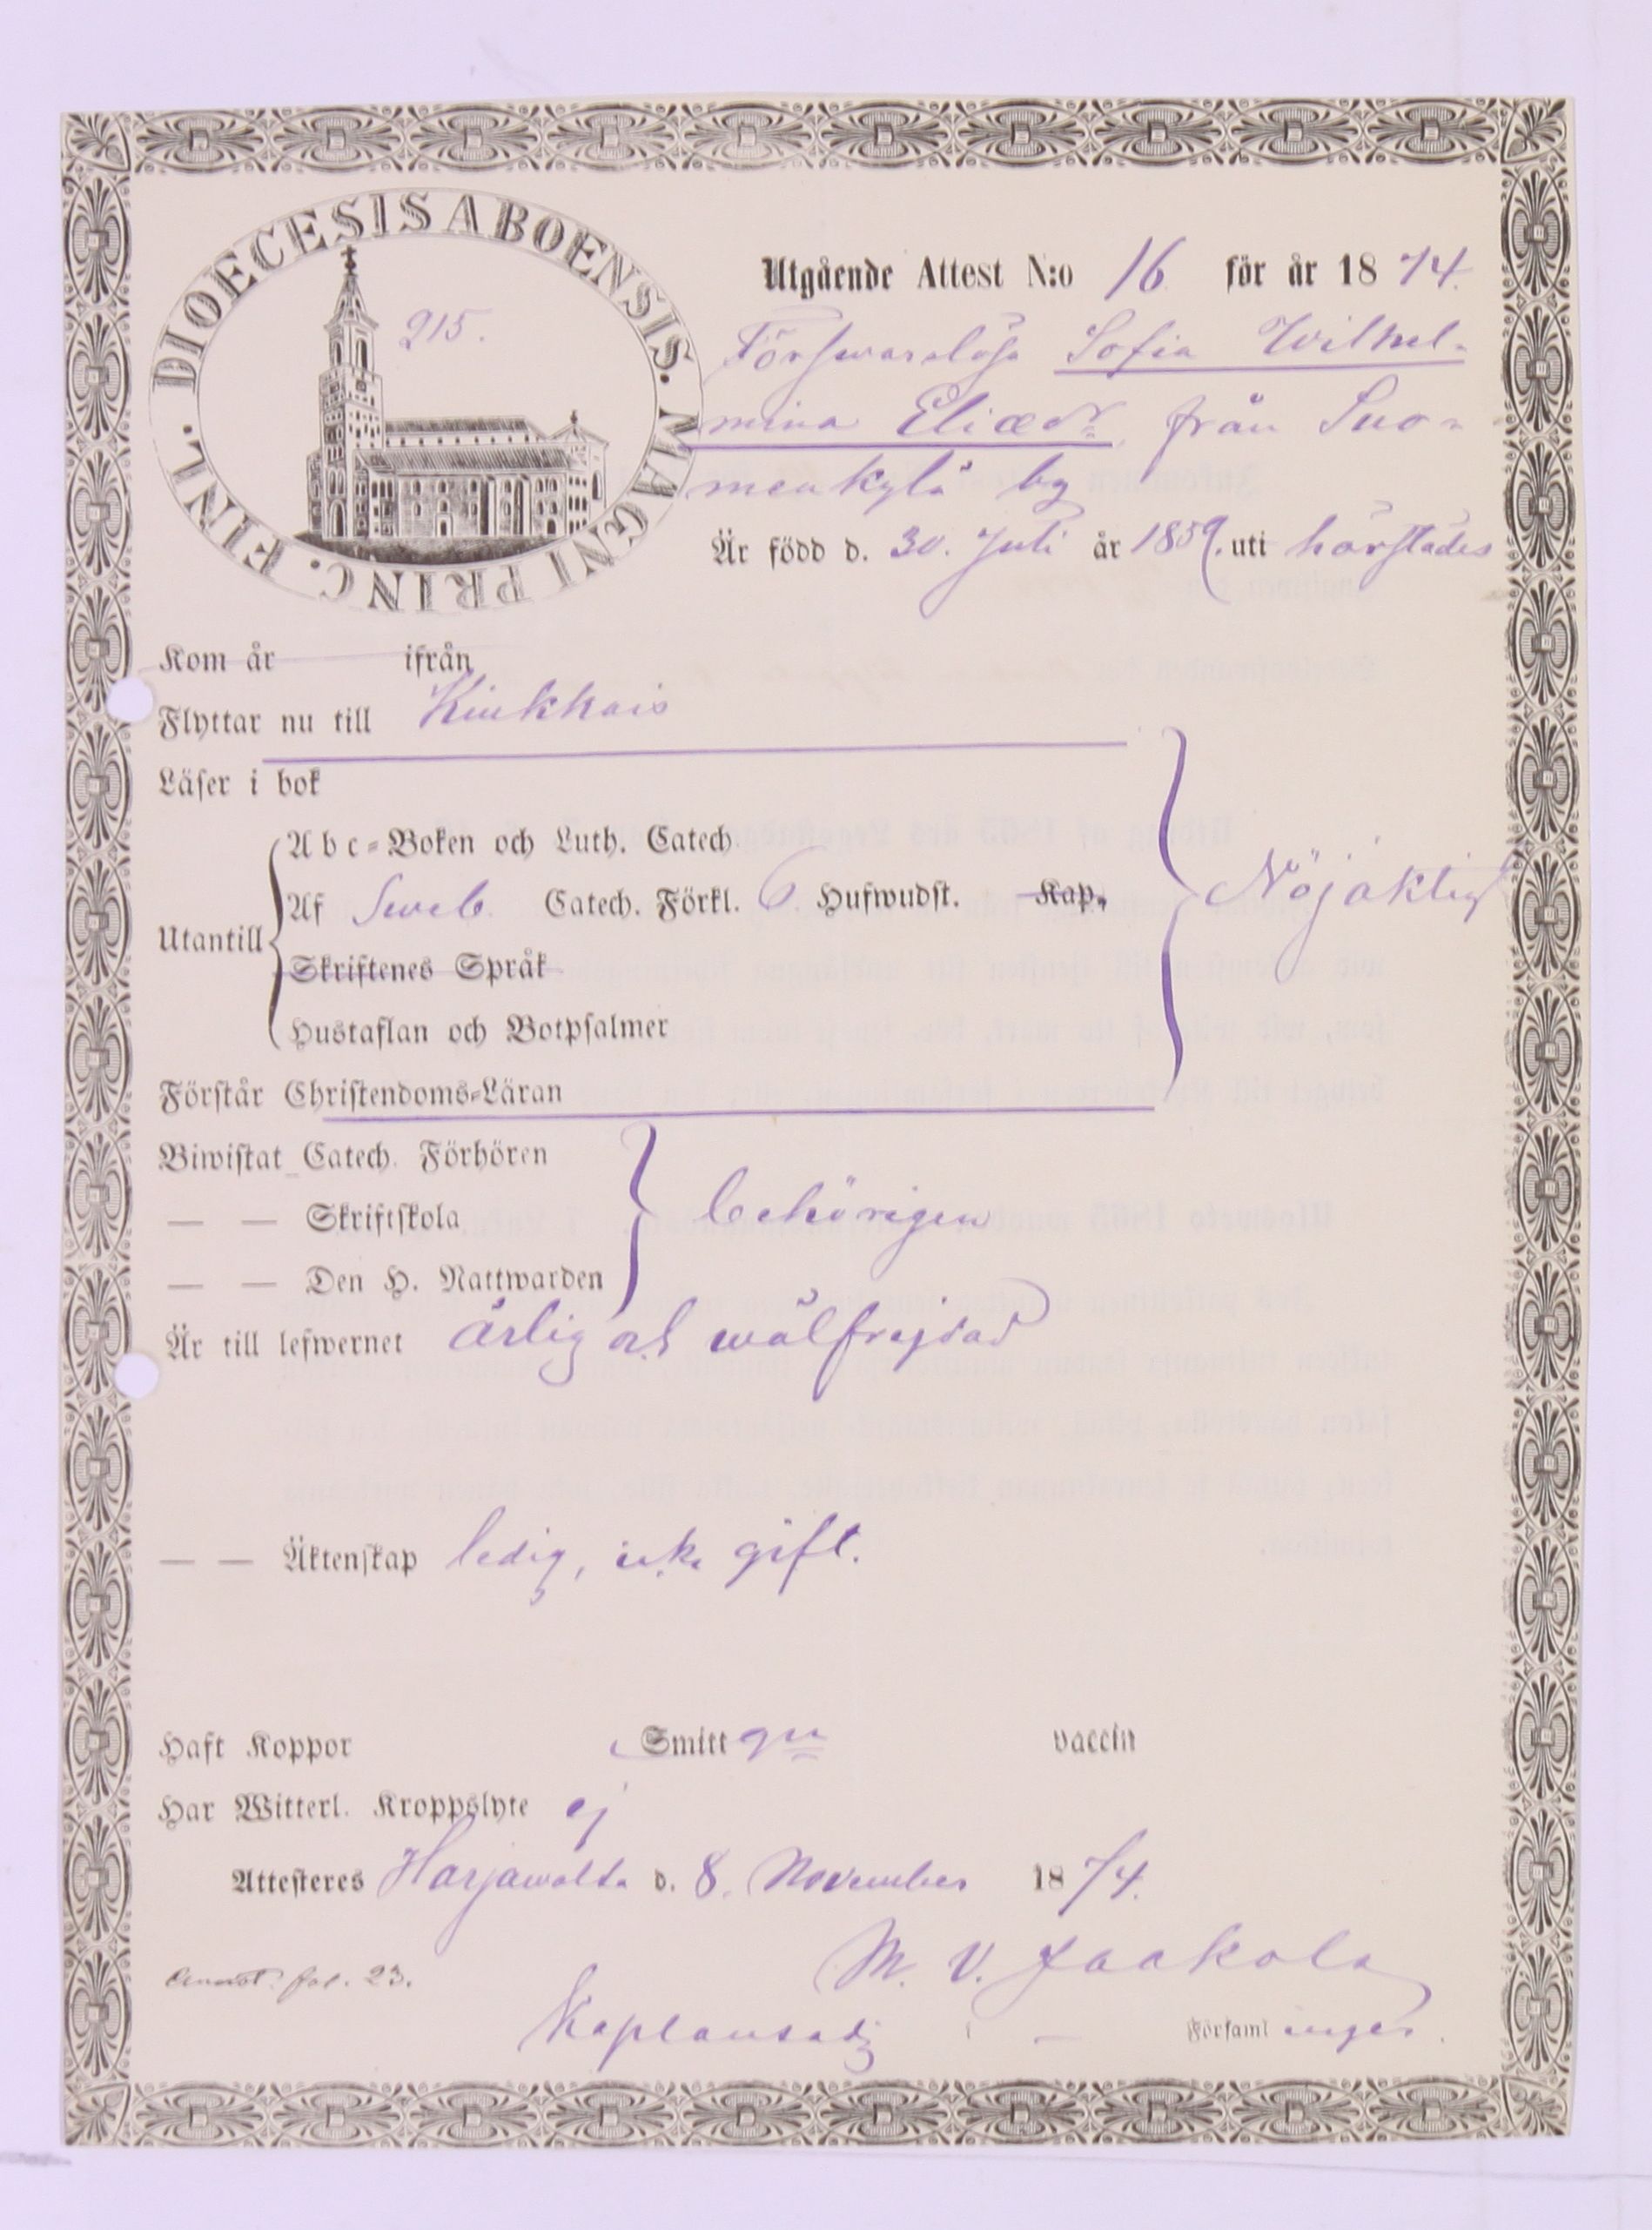 DIOECESIS ABOENSIS. MAGNI PRINC. FINL.
215.
Utgående Attest N:o 16 för år 1874.
Förswarslösa Sofia Wilhel-
mina Eliædr. från Suo-
menkylä by
Är född d. 30. Juli år 1859. uti härstädes
Kom år ifrån
Flyttar nu till Kiukkais
Läser i bok
Abc-Boken och Luth. Catech.
Utantill Af Sweb. Catech. Förkl. 6 Hufwudst. Kap. Nöjaktigt
Skriftenes Språk
Hustaflan och Botpsalmer
Förstår Christendoms-Läran
Biwistat Catech. Förhören
— — Skriftskola behörigen
— — Den H. Nattwarden
Är till lefwernet ärlig och wälfrejdad
— — Äktenskap ledig, icke gift.
Haft Koppor Smitt vaccin
Har Witterl. Kroppslyte ej
Attesteres Harjawalta d. 8. November 1874.
M. V. Jaakola
Annot. fol. 23.
Kaplansadj i — Församlingen.